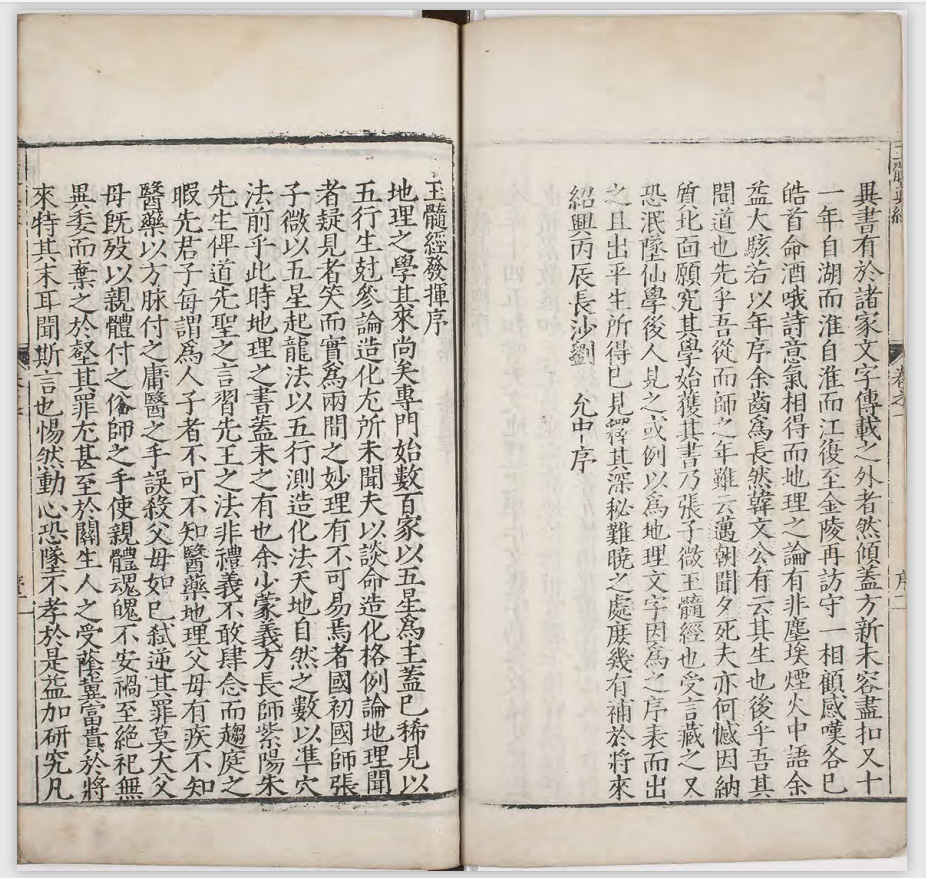 玉髓真經
卷之一
序二
異書有於諸家文字傳載之外者然傾蓋方新未容盡扣又十
一年自湖而淮自淮而江復至金陵再訪守一相顧感嘆各已
皓首命酒哦詩意氣相得而地理之論有非塵埃煙火中語余
益大駭若以年序余齒爲長然韓文公有云其生也後乎吾其
聞道也先乎吾從而師之年雖云邁朝聞夕死夫亦何憾因納
質北面願究其學始獲其書乃張子微玉髓經也受言藏之又
恐泯墜仙學後人見之或例以爲地理文字因爲之序表而出
之且出平生所得已見釋其深秘難曉之處庶幾有補於將來
紹興丙辰長沙劉 允中序
玉髓經發揮序
地理之學其來尚矣專門始數百家以五星爲主蓋已稀見以
五行生尅參論造化尤所未聞夫以談命造化格例論地理聞
者疑見者笑而實爲兩間之妙理有不可易焉者國初國師張
子微以五星起龍法以五行測造化法天地自然之數以準穴
法前乎此時地理之書蓋未之有也余少蒙義方長師紫陽朱
先生俾道先聖之言習先王之法非禮義不敢肆念而趨庭之
暇先君子每謂爲人子者不可不知醫藥地理父母有疾不知
醫藥以方脉付之庸醫之手誤殺父母如已弑逆其罪莫大父
母旣歿以親體付之俗師之手使親體魂魄不安禍至絶祀無
異委而棄之於壑其罪尤甚至於關生人之受蔭冀富貴於將
來特其末耳聞斯言也惕然動心恐墜不孝於是益加研究凡
序一